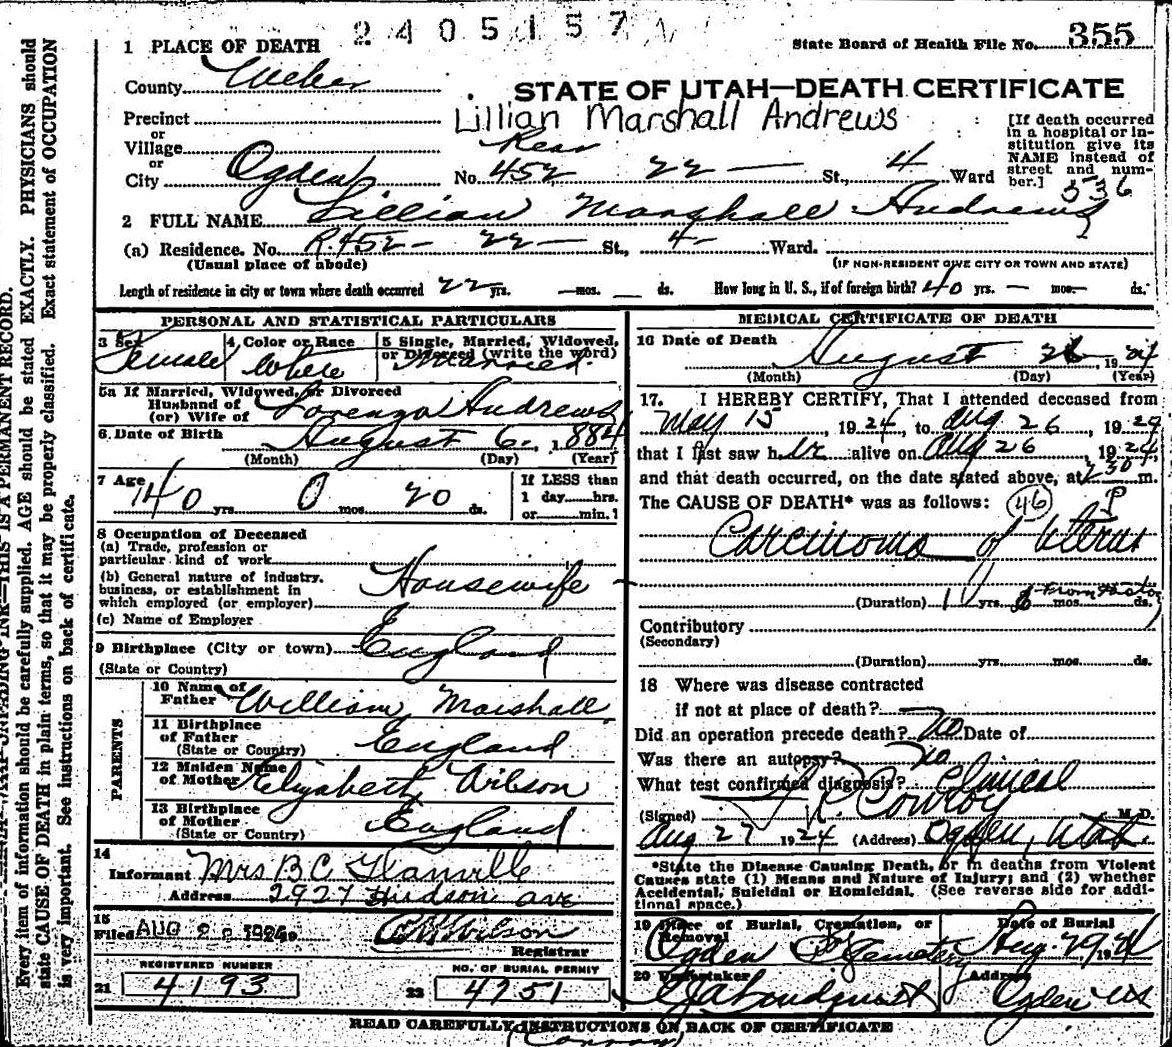 2405157
1 PLACE OF DEATH
State Board of Health File No. 355
County Weber
STATE OF UTAH—DEATH CERTIFICATE
Precinct
Lillian Marshall Andrews
or
Village
or
City Ogden
Rear
No. 452 22 — St., 4 Ward
[If death occurred
in a hospital or in-
stitution give its
NAME instead of
street and num-
ber.]
536
2 FULL NAME Lillian Marshall Andrews
(a) Residence. No. R. 452 — 22 — St., 4 — Ward.
(Usual place of abode)
(IF NON-RESIDENT GIVE CITY OR TOWN AND STATE)
Length of residence in city or town where death occurred 22 yrs. — mos. — ds.
How long in U. S., if of foreign birth? 40 yrs. — mos. — ds.
PERSONAL AND STATISTICAL PARTICULARS
3 Sex
Female
4 Color or Race
White
5 Single, Married, Widowed,
or Divorced (write the word)
Married
5a If Married, Widowed, or Divorced
Husband of
(or) Wife of
Lorenzo Andrews
6 Date of Birth August 6, 1884
(Month) (Day) (Year)
7 Age 40 yrs. 0 mos. 20 ds.
If LESS than
1 day......hrs.
or......min.?
8 Occupation of Deceased
(a) Trade, profession or
particular kind of work
(b) General nature of industry,
business, or establishment in
which employed (or employer)
Housewife
(c) Name of Employer
9 Birthplace (City or town) England
(State or Country)
PARENTS
10 Name of
Father William Marshall
11 Birthplace
of Father
(State or Country)
England
12 Maiden Name
of Mother Elizabeth Wilson
13 Birthplace
of Mother
(State or Country)
England
14
Informant Mrs B C Glanville
Address 2927 Hudson ave
15
Filed AUG 1924
Wilson
Registrar
REGISTERED NUMBER
21 4193
NO. OF BURIAL PERMIT
22 4751
MEDICAL CERTIFICATE OF DEATH
16 Date of Death
August 26, 1924
(Month) (Day) (Year)
17. I HEREBY CERTIFY, That I attended deceased from
May 15, 1924, to Aug 26, 1924
that I last saw her alive on Aug 26, 1924,
and that death occurred, on the date stated above, at 230 P m.
The CAUSE OF DEATH* was as follows: 46
Carcinoma of Uterus
(Duration) 1 yrs. mos. ds.
Contributory
(Secondary)
(Duration) yrs. mos. ds.
18 Where was disease contracted
if not at place of death?
Did an operation precede death? No Date of
Was there an autopsy? No
What test confirmed diagnosis? Clinical
(Signed) Conroy M.D.
Aug 27 1924 (Address) Ogden, Utah.
*State the Disease Causing Death, or in deaths from Violent
Causes state (1) Means and Nature of Injury; and (2) whether
Accidental, Suicidal or Homicidal. (See reverse side for addi-
tional space.)
19 Place of Burial, Cremation, or
Removal
Ogden Cemetery
Date of Burial
Aug. 29, 1924
20 Undertaker
Lindquist
Address
Ogden Ut
READ CAREFULLY INSTRUCTIONS ON BACK OF CERTIFICATE
(Conroy)
THIS IS A PERMANENT RECORD.
Every item of information should be carefully supplied. AGE should be stated EXACTLY. PHYSICIANS should
state CAUSE OF DEATH in plain terms, so that it may be properly classified. Exact statement of OCCUPATION
is very important. See instructions on back of certificate.